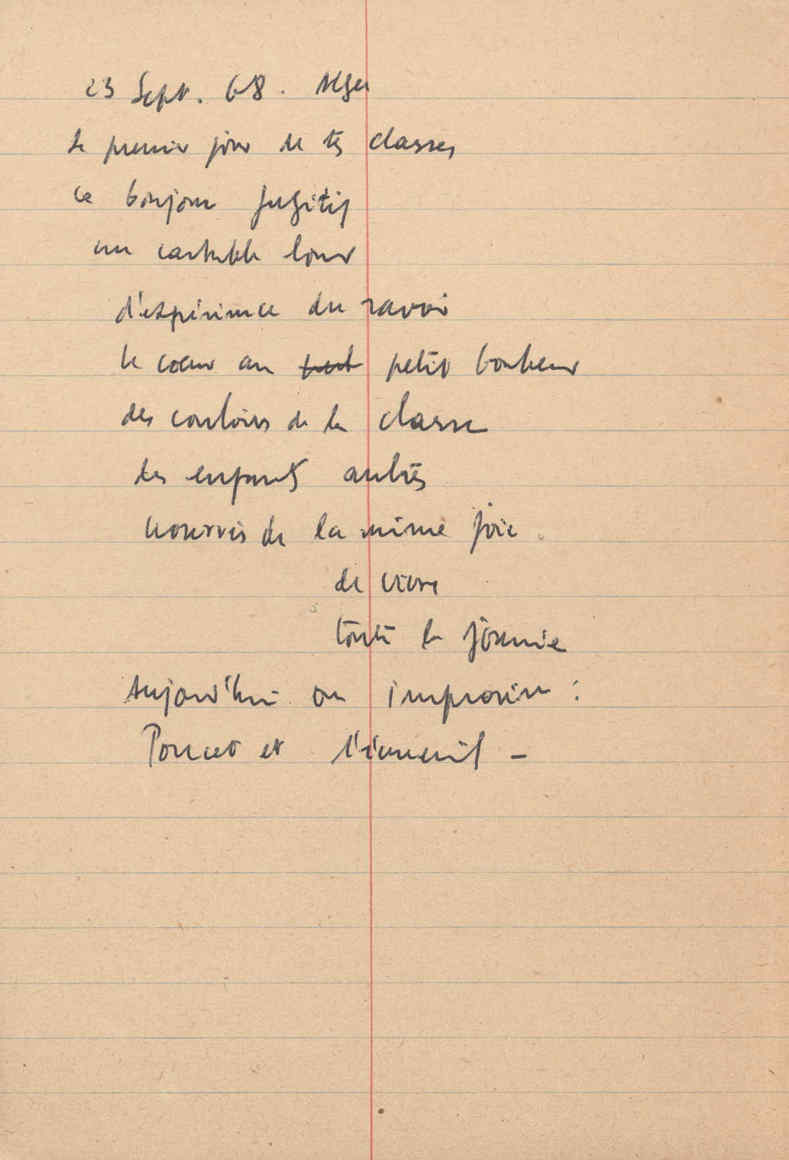 23 Sept. 68. Alger
Le premier jour de tes classes
ce bonjour fugitif
un cartable lourd
d'expérience du savoir
le cœur au petit bonheur
des couloirs de la classe
des enfants autres
nourris de la même joie
de vivre
toute la journée
Aujourd'hui on improvise :
Poucet et